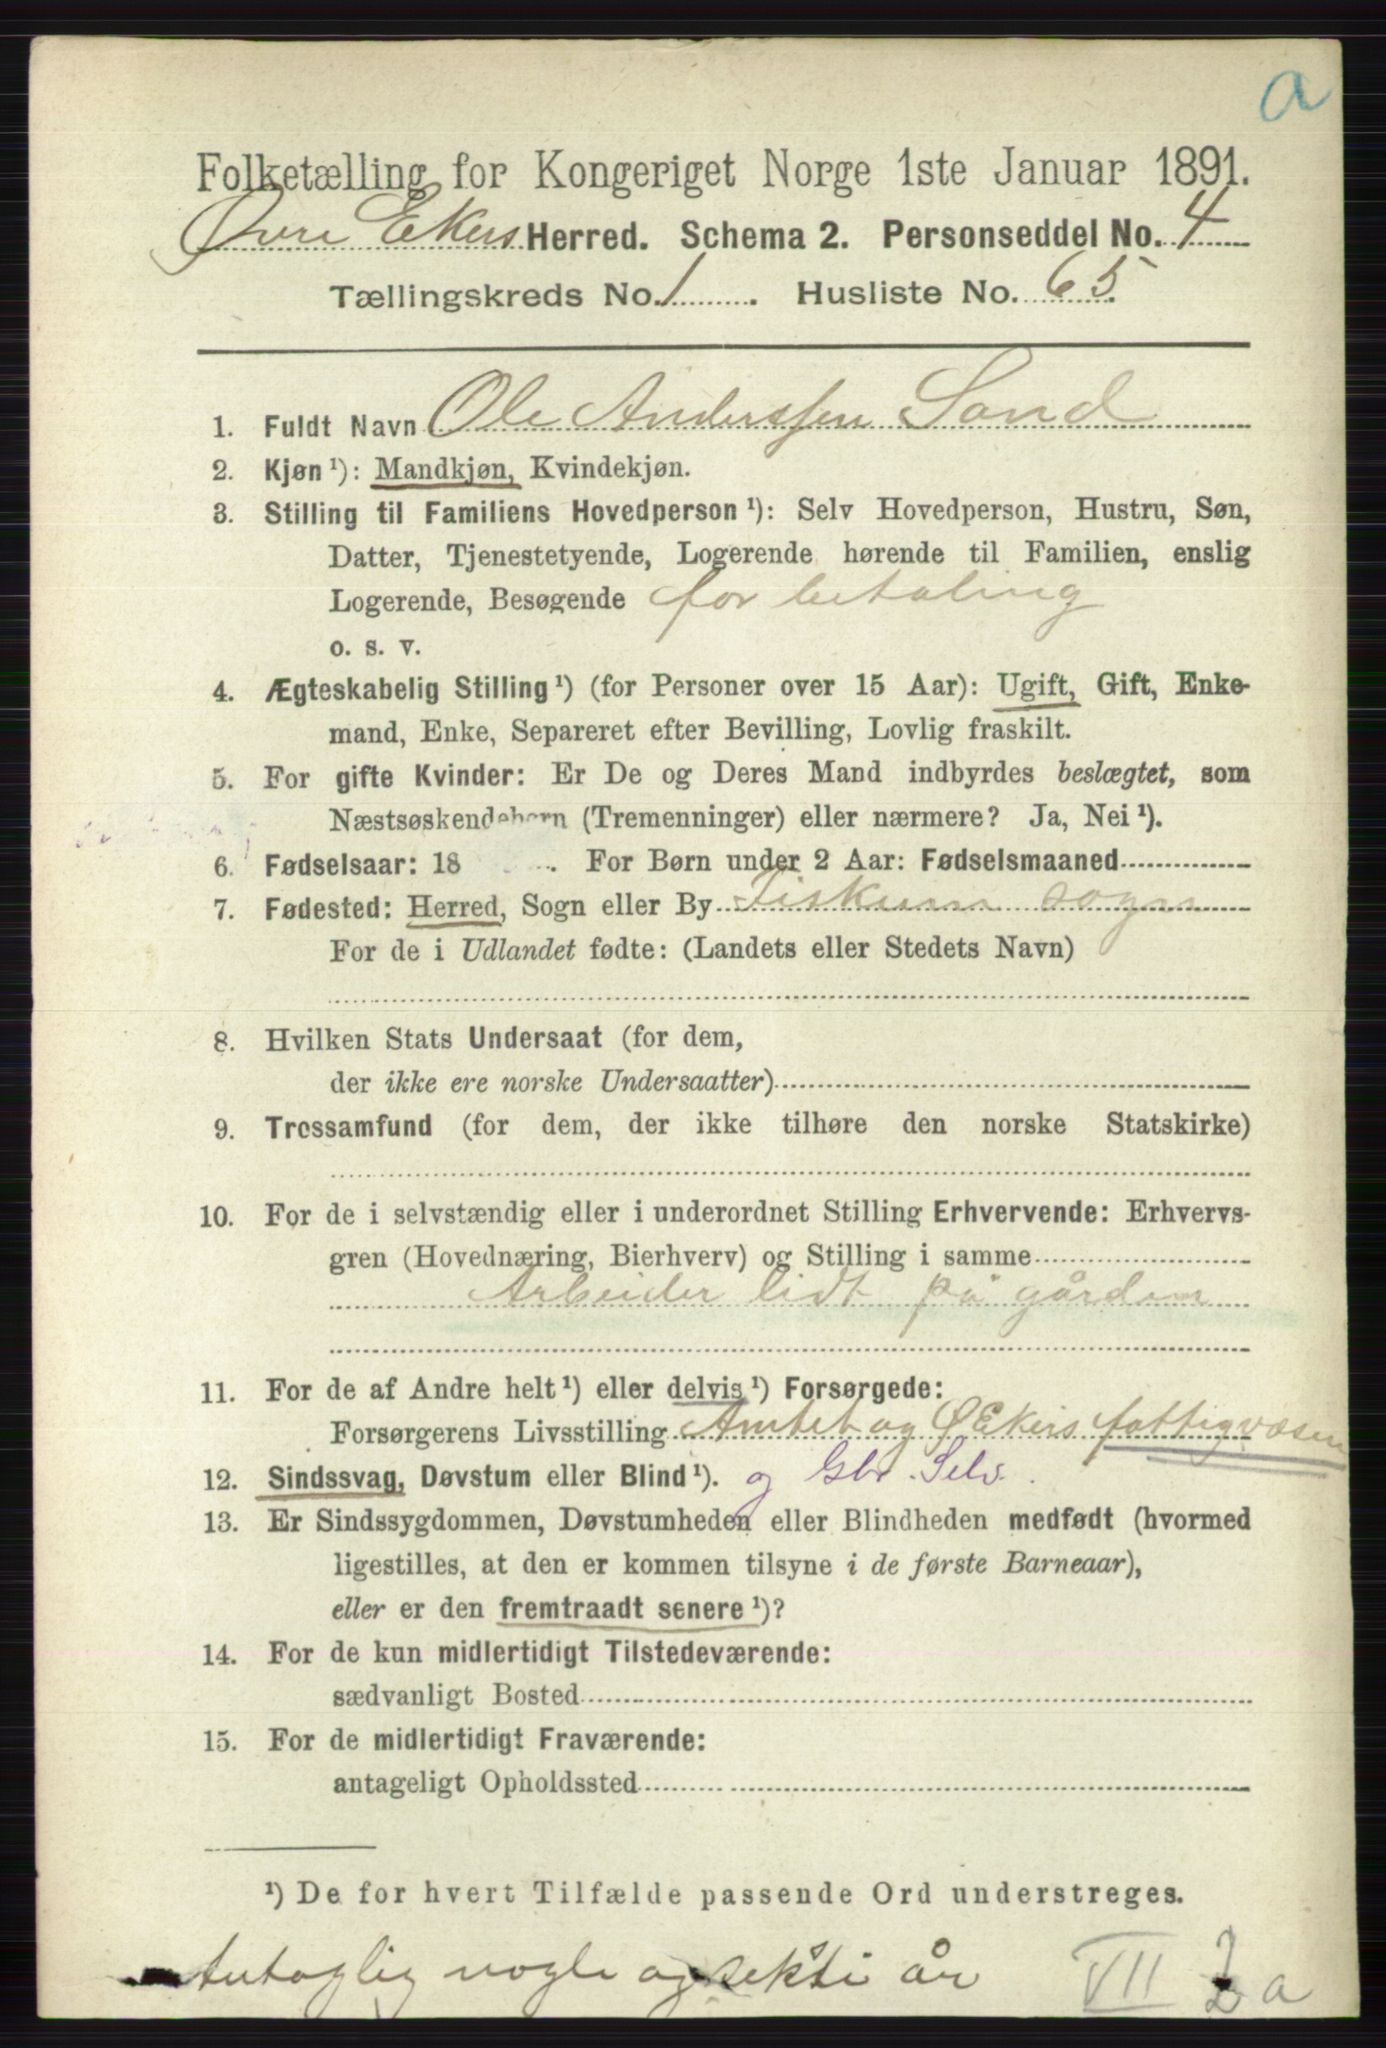 a
Folketælling for Kongeriget Norge 1ste Januar 1891.
Øvre Ekers Herred. Schema 2. Personseddel No. 4
Tællingskreds No. 1. Husliste No. 65.
1. Fuldt Navn Ole Anderssen Sand
2. Kjøn¹): Mandkjøn, Kvindekjøn.
3. Stilling til Familiens Hovedperson¹): Selv Hovedperson, Hustru, Søn,
Datter, Tjenestetyende, Logerende hørende til Familien, enslig
Logerende, Besøgende for betaling
o. s. v.
4. Ægteskabelig Stilling¹) (for Personer over 15 Aar): Ugift, Gift, Enke-
mand, Enke, Separeret efter Bevilling, Lovlig fraskilt.
5. For gifte Kvinder: Er De og Deres Mand indbyrdes beslægtet, som
Næstsøskendebørn (Tremenninger) eller nærmere? Ja, Nei¹).
6. Fødselsaar: 18 . For Børn under 2 Aar: Fødselsmaaned
7. Fødested: Herred, Sogn eller By Fiskum sogn
For de i Udlandet fødte: (Landets eller Stedets Navn)
8. Hvilken Stats Undersaat (for dem,
der ikke ere norske Undersaatter)
9. Trossamfund (for dem, der ikke tilhøre den norske Statskirke)
10. For de i selvstændig eller i underordnet Stilling Erhvervende: Erhvervs-
gren (Hovednæring, Bierhverv) og Stilling i samme
Arbeider lidt på gården
11. For de af Andre helt¹) eller delvis¹) Forsørgede:
Forsørgerens Livsstilling Amtet og Ø Ekers fattigvæsen
12. Sindssvag, Døvstum eller Blind¹). og Gbr. Selv.
13. Er Sindssygdommen, Døvstumheden eller Blindheden medfødt (hvormed
ligestilles, at den er kommen tilsyne i de første Barneaar),
eller er den fremtraadt senere¹)?
14. For de kun midlertidigt Tilstedeværende:
sædvanligt Bosted
15. For de midlertidigt Fraværende:
antageligt Opholdssted
¹) De for hvert Tilfælde passende Ord understreges.
Antaglig nogle og sekti år VII 2 a